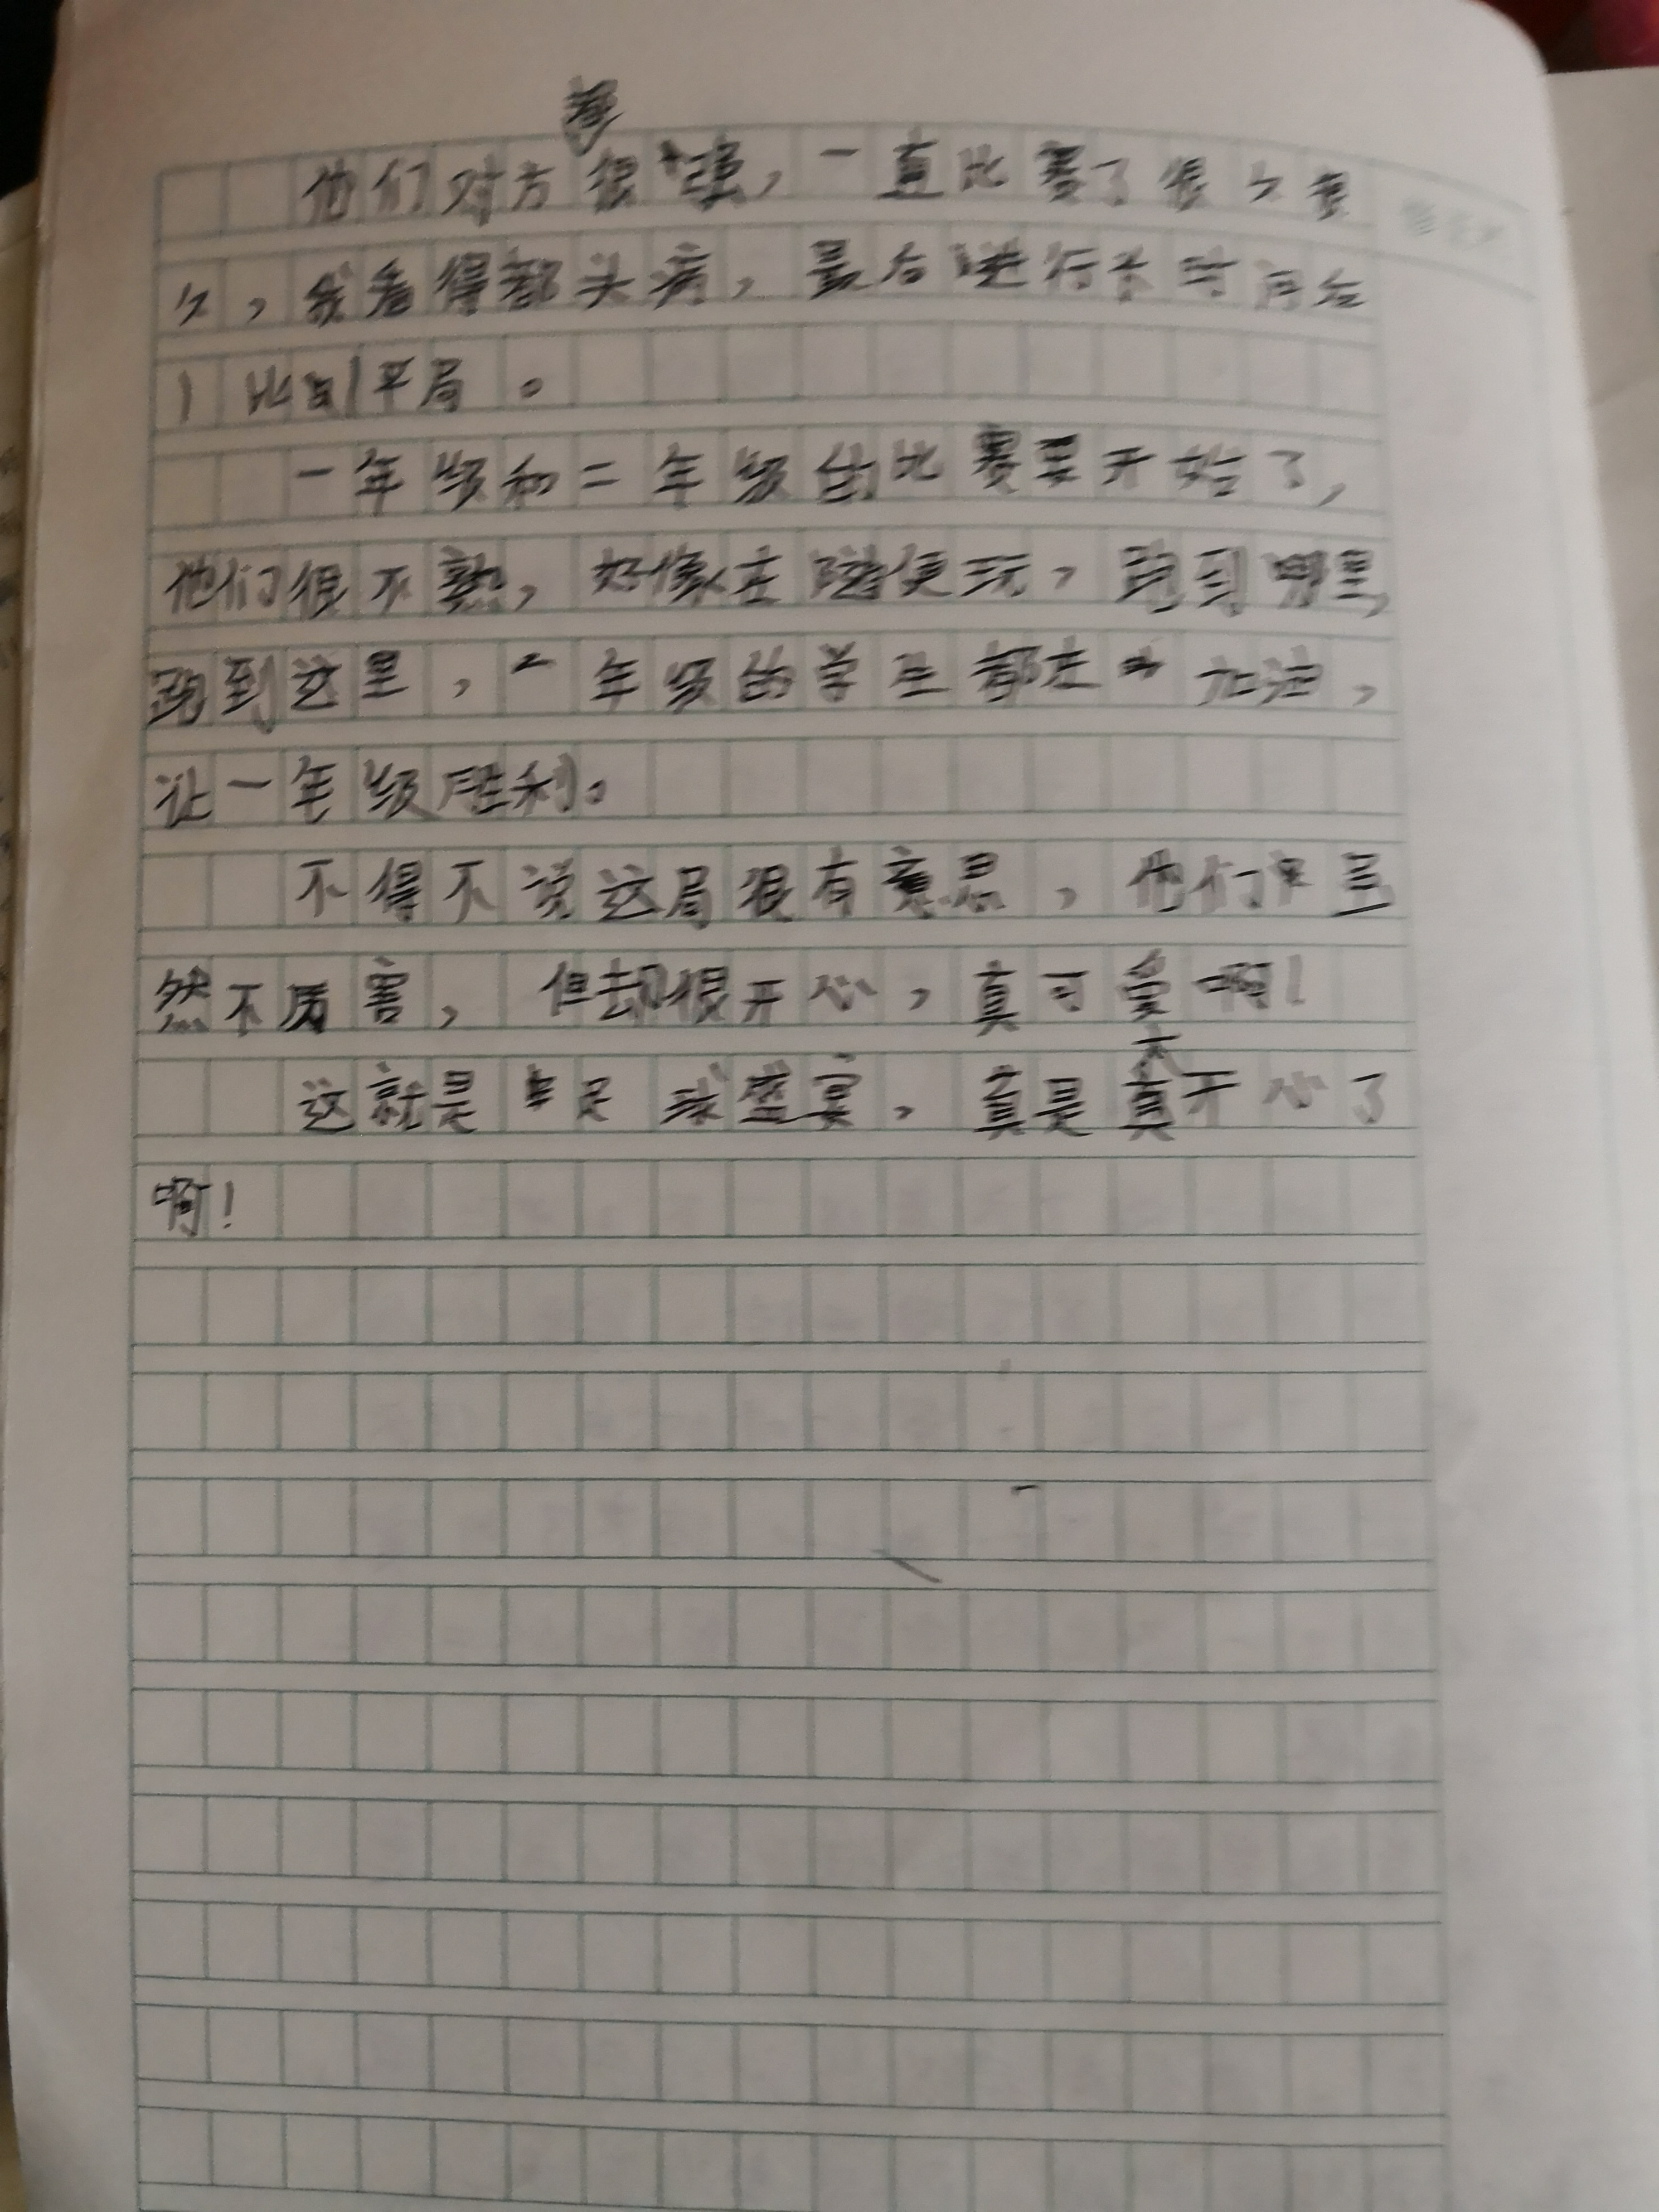 他们对方都很强，一直比赛了很久很
久，我看得都头痛，最后进行长时间后
1比1平局。
一年级和二年级的比赛要开始了，
他们很不熟，好像在随便玩，跑到哪里，
跑到这里，一年级的学生都在加油，
让一年级胜利。
不得不说这局很有意思，他们虽
然不厉害，但却很开心，真可爱啊！
这就是足球盛宴，真是太开心了
啊！